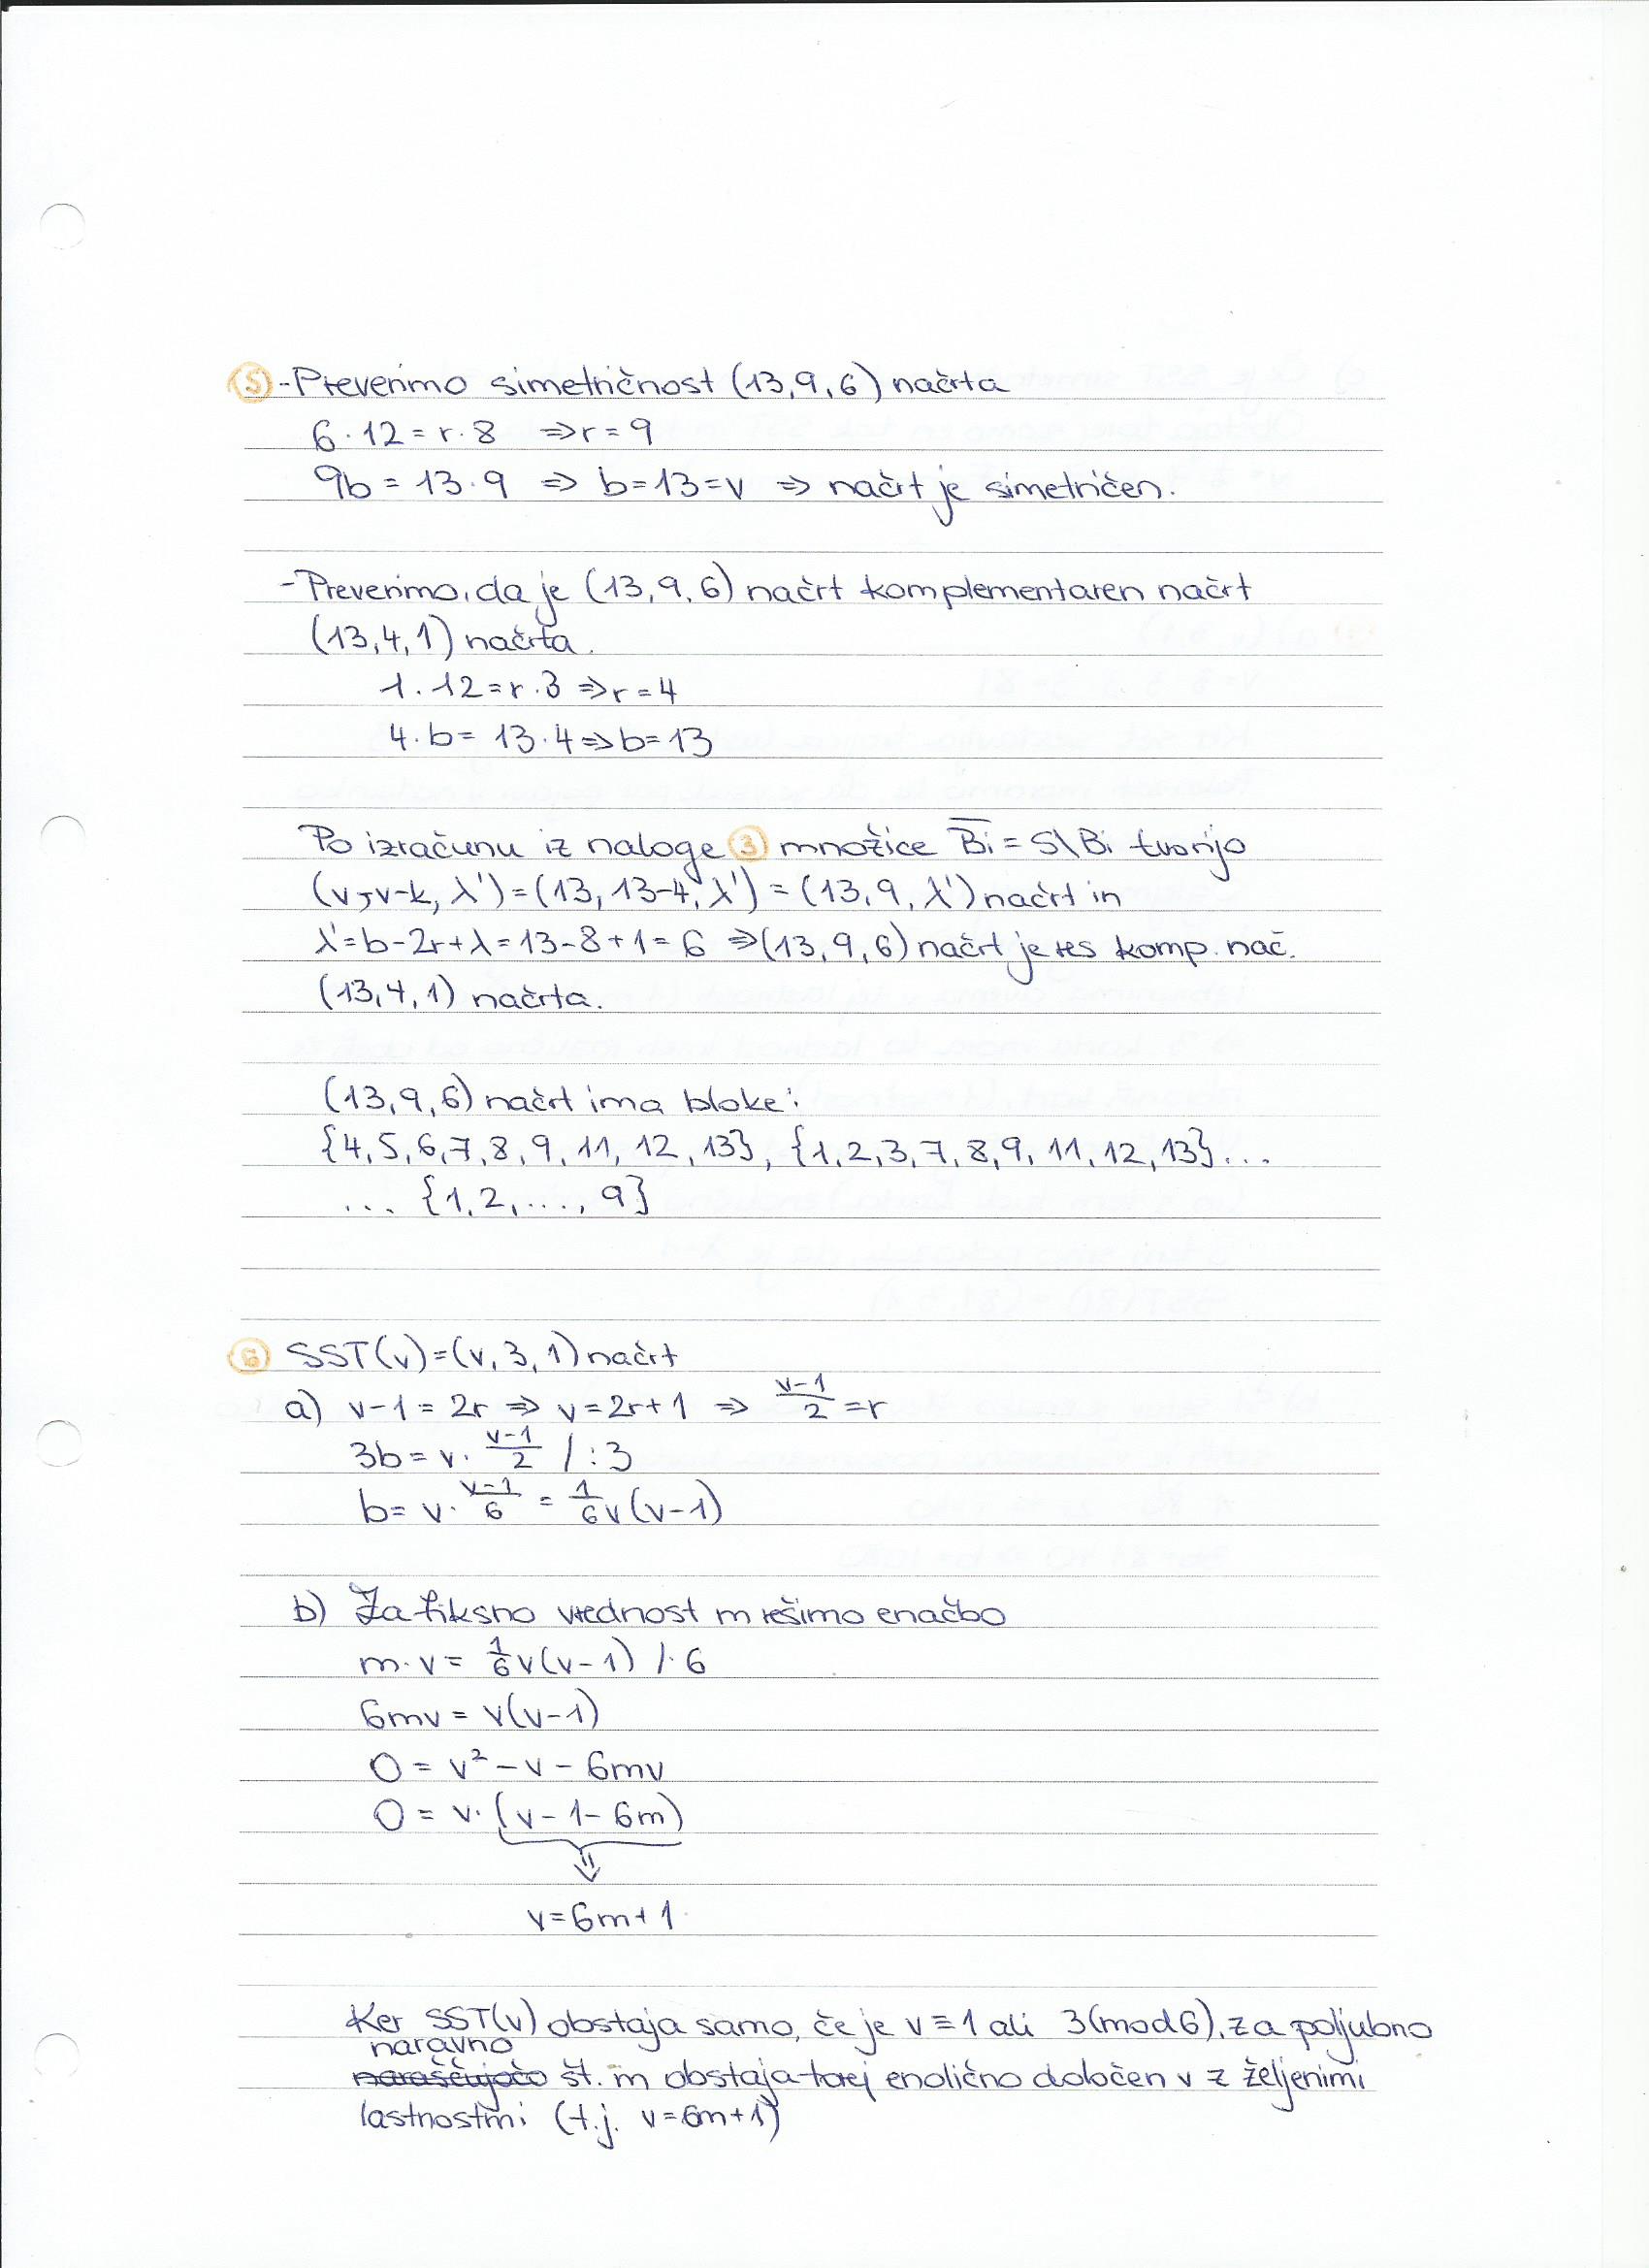 ⑤ - Preverimo simetričnost (13,9,6) načrta
6·12 = r·8 ⇒ r = 9
9b = 13·9 ⇒ b = 13 = v ⇒ načrt je simetričen.
- Preverimo, da je (13,9,6) načrt komplementaren načrt
(13,4,1) načrta.
1·12 = r·3 ⇒ r = 4
4·b = 13·4 ⇒ b = 13
Po izračunu iz naloge ③ množice B̅i = S\Bi tvorijo
(v, v-k, λ') = (13, 13-4, λ') = (13, 9, λ') načrt in
λ' = b - 2r + λ = 13 - 8 + 1 = 6 ⇒ (13,9,6) načrt je res komp. nač.
(13,4,1) načrta.
(13,9,6) načrt ima bloke:
{4,5,6,7,8,9,11,12,13}, {1,2,3,7,8,9,11,12,13}...
... {1,2,...,9}
⑥ SST(v) = (v,3,1) načrt
a) v-1 = 2r ⇒ v = 2r+1 ⇒ (v-1)/2 = r
3b = v·(v-1)/2 /:3
b = v·(v-1)/6 = 1/6 v(v-1)
b) Za fiksno vrednost m rešimo enačbo
m·v = 1/6 v(v-1) /·6
6mv = v(v-1)
0 = v² - v - 6mv
0 = v·(v-1-6m)
⇓
v = 6m+1
Ker SST(v) obstaja samo, če je v ≡ 1 ali 3 (mod 6), za poljubno
naravno
naraščujočo št. m obstaja torej enolično določen v z željenimi
lastnostmi (t.j. v = 6m+1)